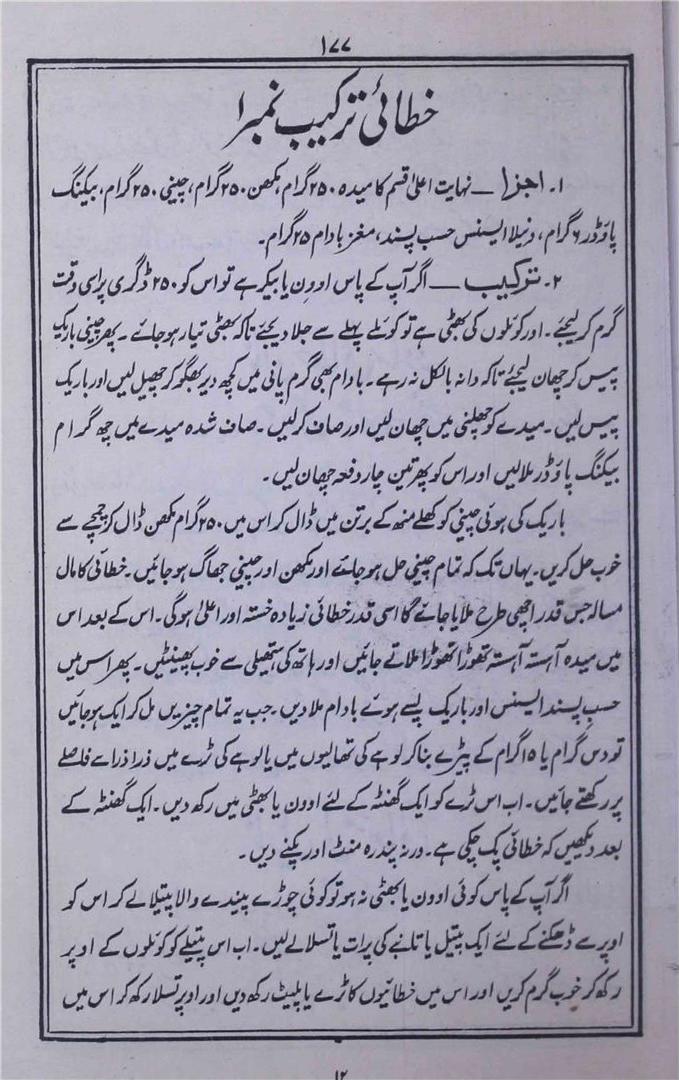 ۱۷۷
خطائی ترکیب نمبر ۱
۱۔ اجزا — نہایت اعلیٰ قسم کا میدہ ۲۵۰ گرام، مکھن ۲۵۰ گرام، چینی ۲۵۰ گرام، بیکنگ
پاؤڈر ۶ گرام، ونیلا ایسنس حسب پسند، مغز بادام ۲۵ گرام۔
۲۔ ترکیب — اگر آپ کے پاس اوون یا بیکر ہے تو اس کو ۲۵۰ ڈگری پر اسی وقت
گرم کر لیجئے۔ اور کوئلوں کی بھٹی ہے تو کوئلے پہلے سے جلا دیجئے تاکہ بھٹی تیار ہو جائے۔ پھر چینی باریک
پیس کر چھان لیجئے تاکہ دانہ بالکل نہ رہے۔ بادام بھی گرم پانی میں کچھ دیر بھگو کر چھیل لیں اور باریک
پیس لیں۔ میدے کو چھلنی میں چھان لیں اور صاف کر لیں۔ صاف شدہ میدے میں چھ گرام
بیکنگ پاؤڈر ملا لیں اور اس کو پھر تین چار دفعہ چھان لیں۔
باریک کی ہوئی چینی کو کھلے منھ کے برتن میں ڈال کر اس میں ۲۵۰ گرام مکھن ڈال کر چمچے سے
خوب حل کریں۔ یہاں تک کہ تمام چینی حل ہو جائے اور مکھن اور چینی جھاگ ہو جائیں۔ خطائی کا مال
مسالہ جس قدر اچھی طرح ملایا جائے گا اسی قدر خطائی زیادہ خستہ اور اعلیٰ ہوگی۔ اس کے بعد اس
میں میدہ آہستہ آہستہ تھوڑا تھوڑا ملاتے جائیں اور ہاتھ کی ہتھیلی سے خوب پھینٹیں۔ پھر اس میں
حسب پسند ایسنس اور باریک پسے ہوئے بادام ملا دیں۔ جب یہ تمام چیزیں مل کر ایک ہو جائیں
تو دس گرام یا ۱۵ گرام کے پیڑے بنا کر لوہے کی تھالیوں میں یا لوہے کی ٹرے میں ذرا ذرا سے فاصلے
پر رکھتے جائیں۔ اب اس ٹرے کو ایک گھنٹہ کے لئے اوون یا بھٹی میں رکھ دیں۔ ایک گھنٹہ کے
بعد دیکھیں کہ خطائی پک چکی ہے۔ ورنہ پندرہ منٹ اور پکنے دیں۔
اگر آپ کے پاس کوئی اوون یا بھٹی نہ ہو تو کوئی چوڑے پیندے والا پتیلا لے کر اس کو
اوپر سے ڈھکنے کے لئے ایک پیتل یا تانبے کی پرات یا تسلا لے لیں۔ اب اس پتیلے کو کوئلوں کے اوپر
رکھ کر خوب گرم کریں اور اس میں خطائیوں کا ٹرے یا پلیٹ رکھ دیں اور اوپر تسلا رکھ کر اس میں
۱۲